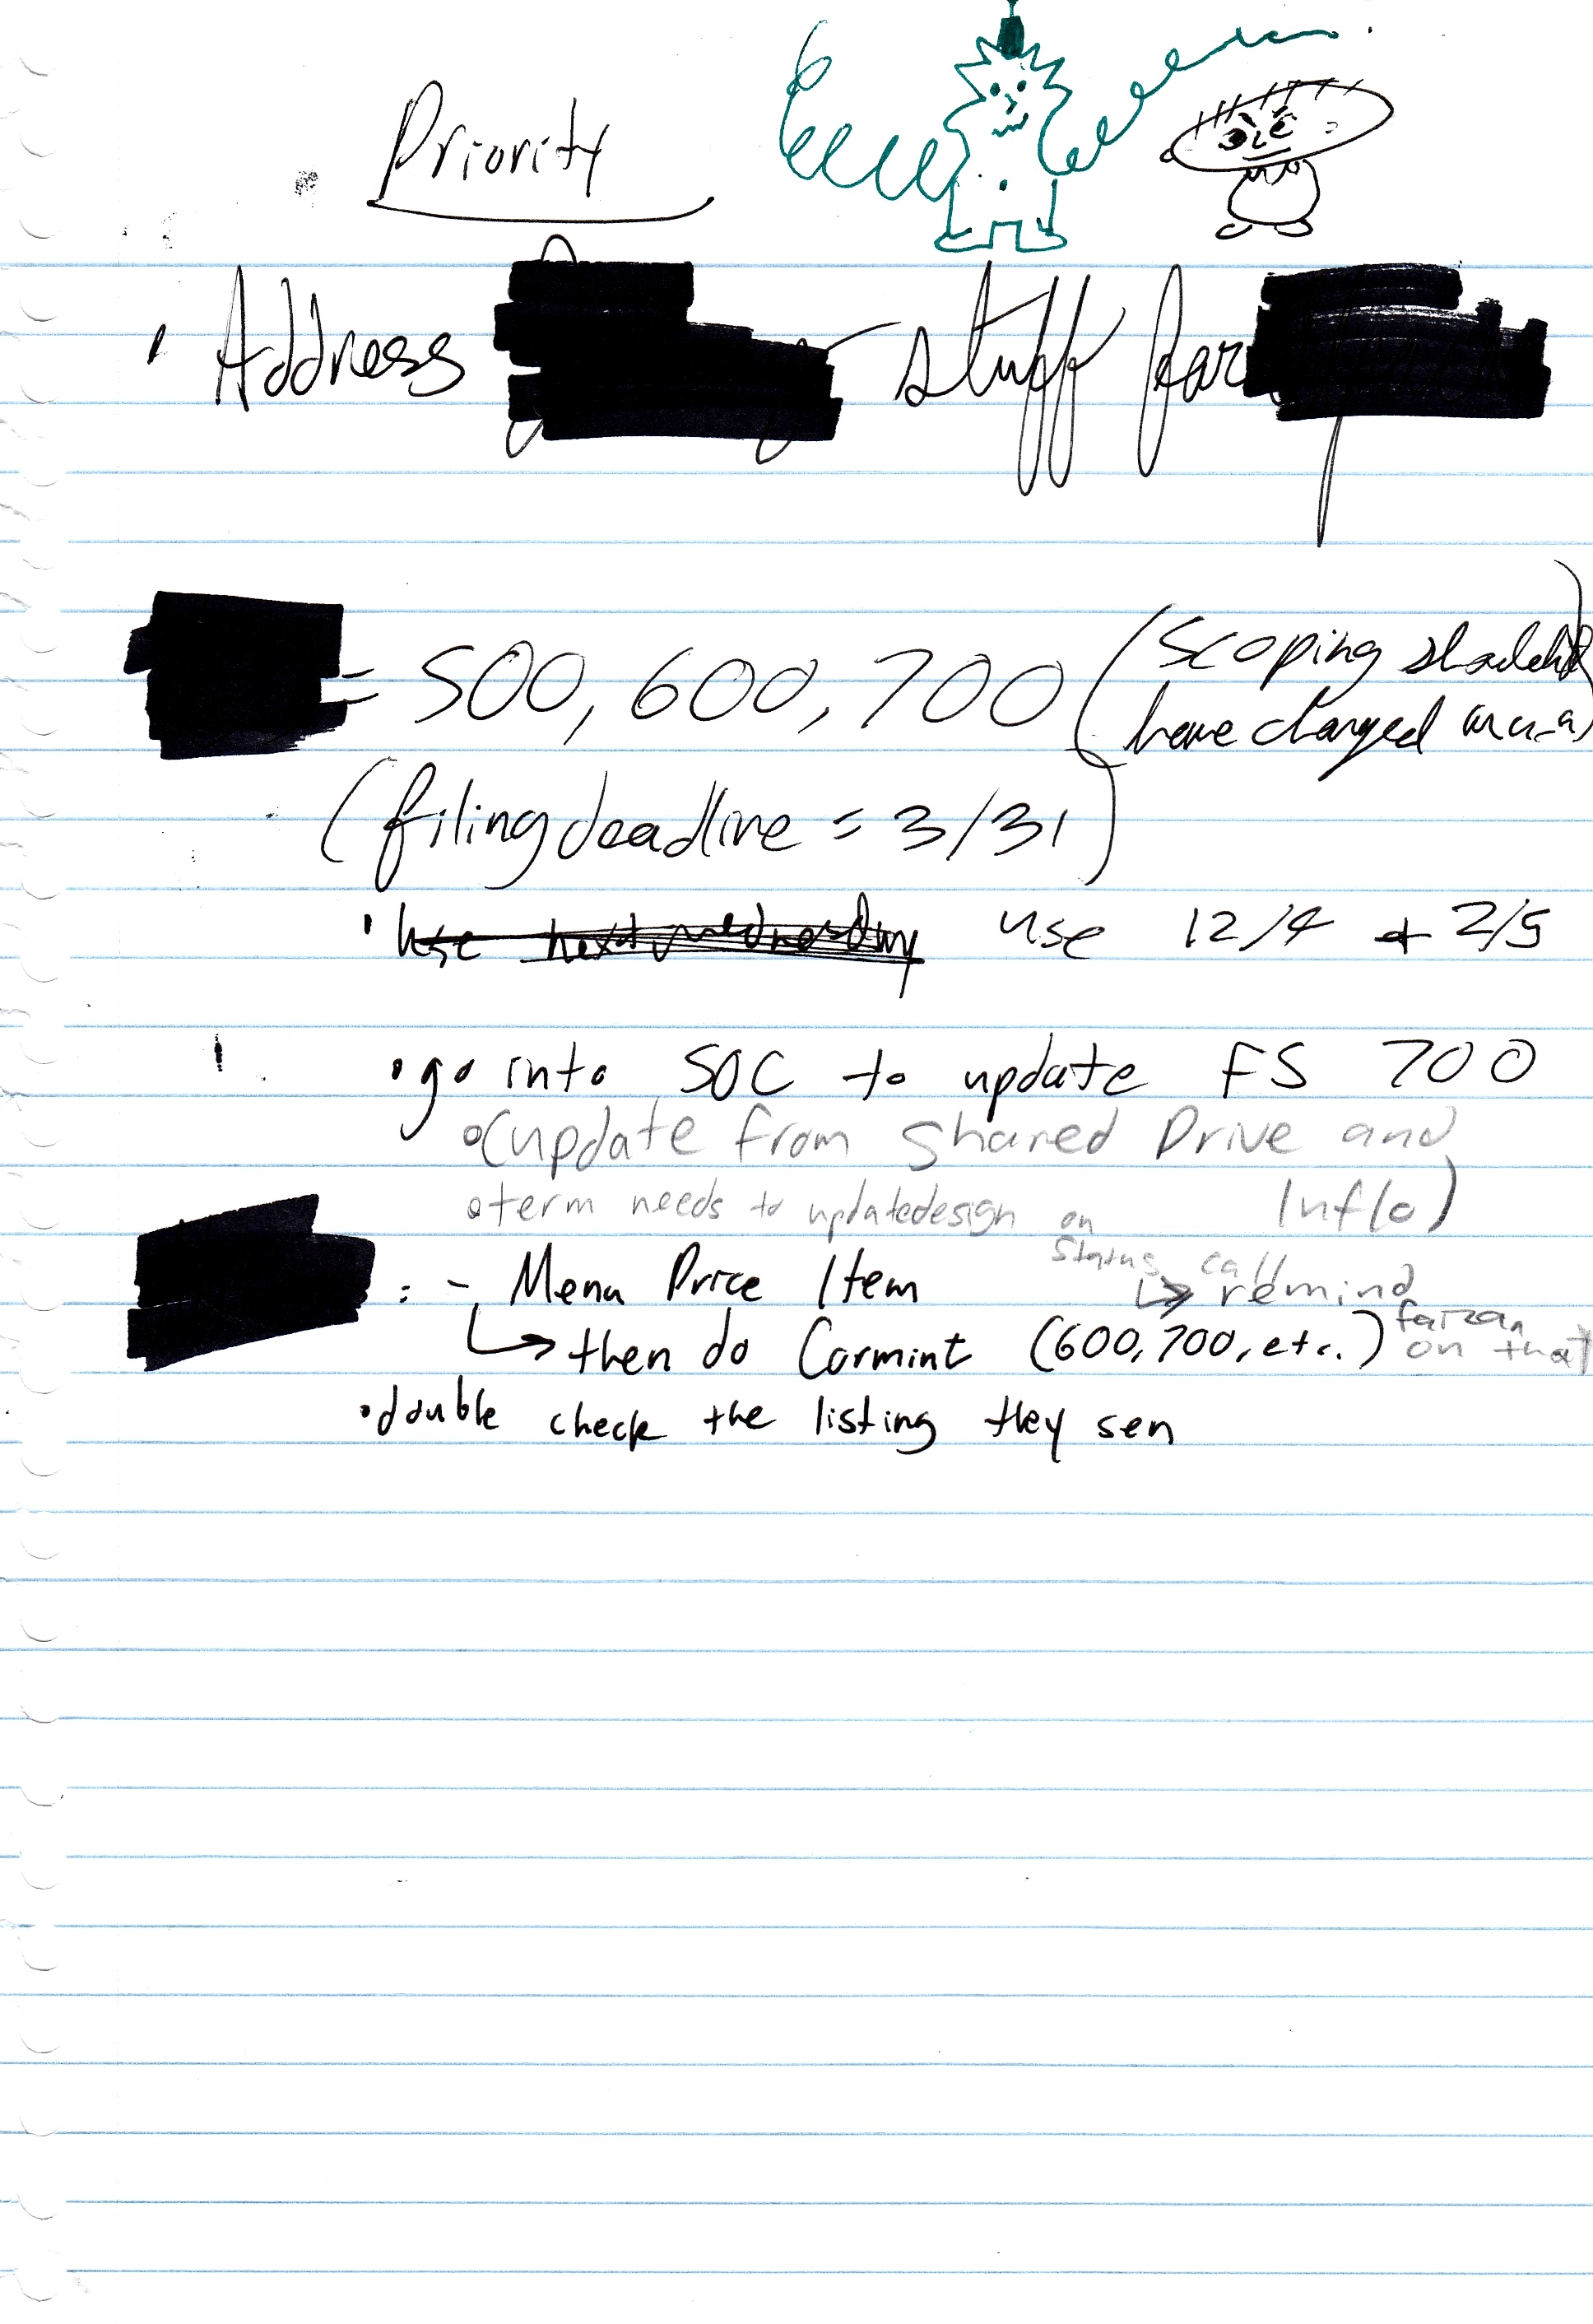 Priority
• Address stuff for
= 500, 600, 700 (Scoping
have changed
(filing deadline = 3/31)
• use next wednesday use 12/4 + 2/5
• go into SOC to update FS 700
(update from Shared Drive and
Inflo)
term needs to update design on
status call
: - Menu Price Item ↳ remind
faizan
↳ then do Carmint (600, 700, etc.) on that
• double check the listing they sen